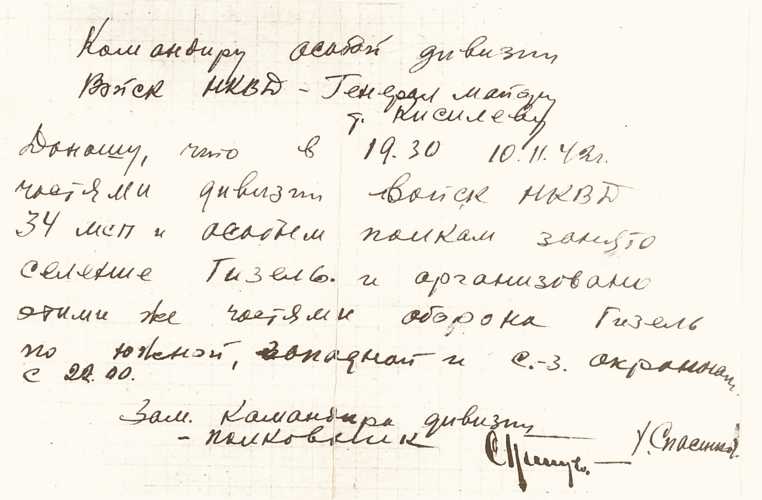 Командиру особой дивизии
Войск НКВД – Генерал майору
т. Киселеву
Доношу, что в 19.30 10.11.42г.
частями дивизии Войск НКВД
34 мсп и особым полком занято
селение Гизель. и организовано
этими же частями оборона Гизель
по южной, западной и с.-з. окраинам.
с 22.00.
Зам. Командира дивизии
– полковник